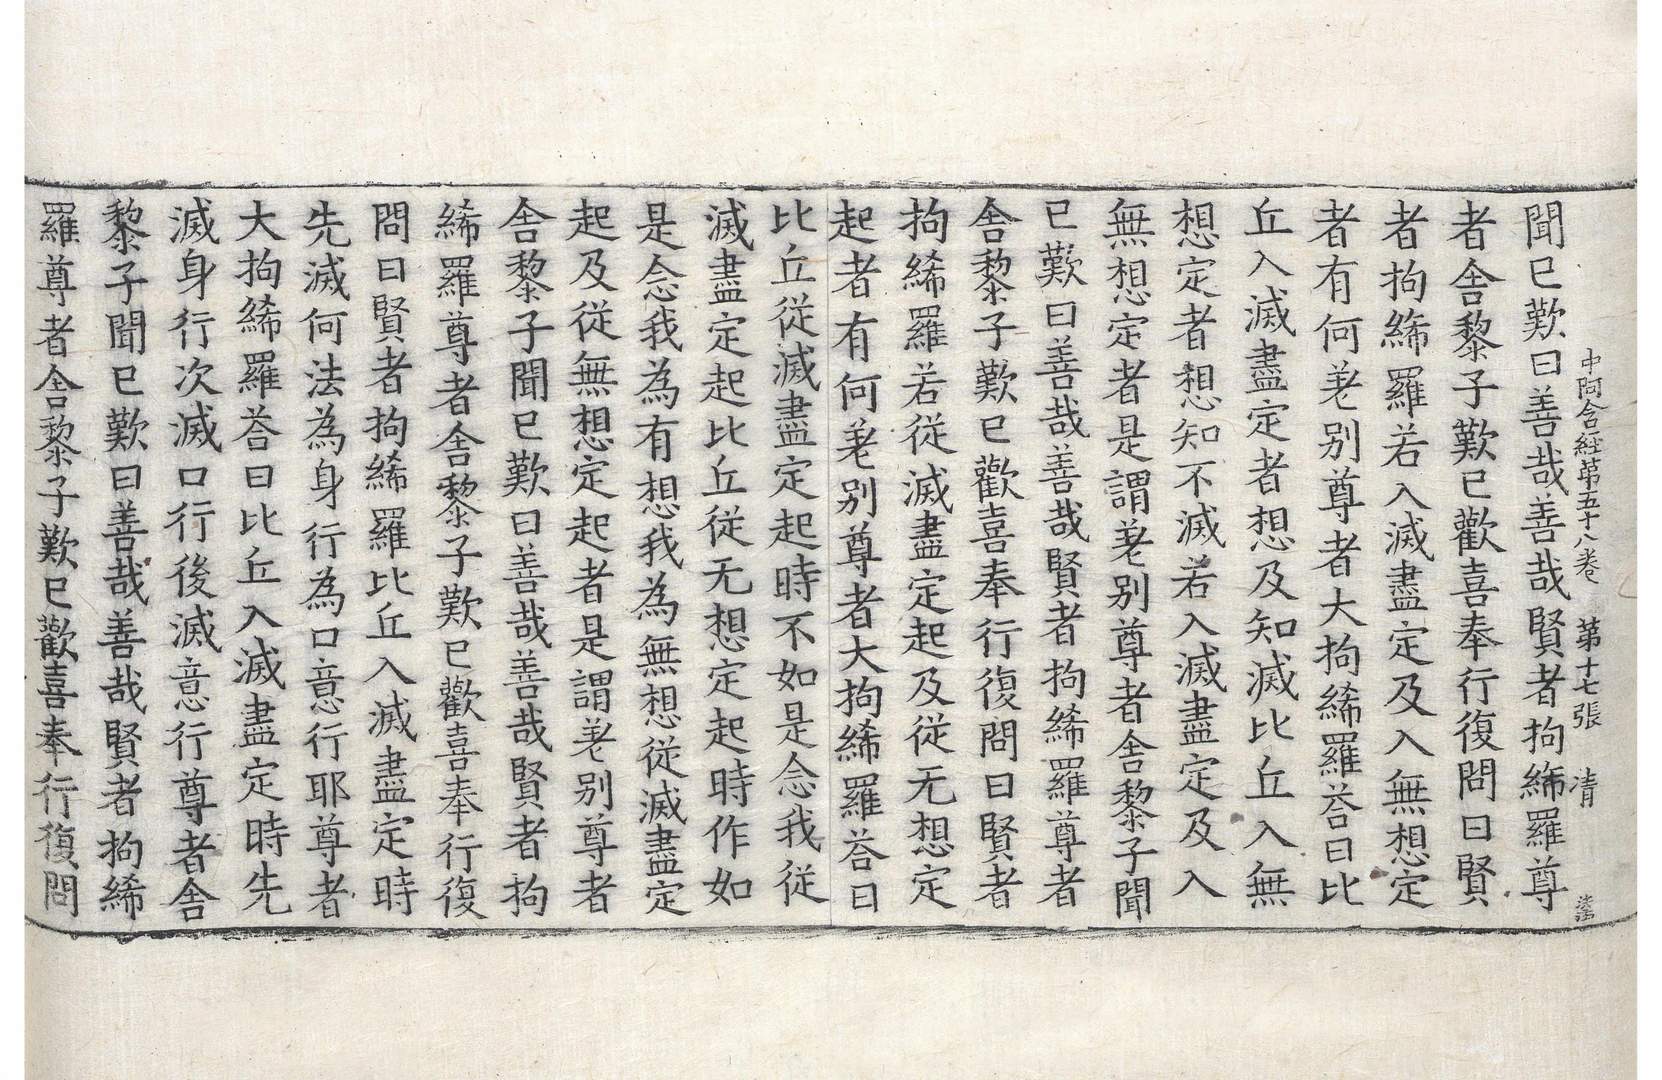 中阿含經第五十八卷 第十七張 清
聞已歎曰善哉善哉賢者拘絺羅尊
者舍黎子歎已歡喜奉行復問曰賢
者拘絺羅若入滅盡定及入無想定
者有何差別尊者大拘絺羅荅曰比
丘入滅盡定者想及知滅比丘入無
想定者想知不滅若入滅盡定及入
無想定者是謂差別尊者舍黎子聞
已歎曰善哉善哉賢者拘絺羅尊者
舍黎子歎已歡喜奉行復問曰賢者
拘絺羅若從滅盡定起及從无想定
起者有何差別尊者大拘絺羅荅曰
比丘從滅盡定起時不如是念我從
滅盡定起比丘從无想定起時作如
是念我為有想我為無想從滅盡定
起及從無想定起者是謂差別尊者
舍黎子聞已歎曰善哉善哉賢者拘
絺羅尊者舍黎子歎已歡喜奉行復
問曰賢者拘絺羅比丘入滅盡定時
先滅何法為身行為口意行耶尊者
大拘絺羅荅曰比丘入滅盡定時先
滅身行次滅口行後滅意行尊者舍
黎子聞已歎曰善哉善哉賢者拘絺
羅尊者舍黎子歎已歡喜奉行復問